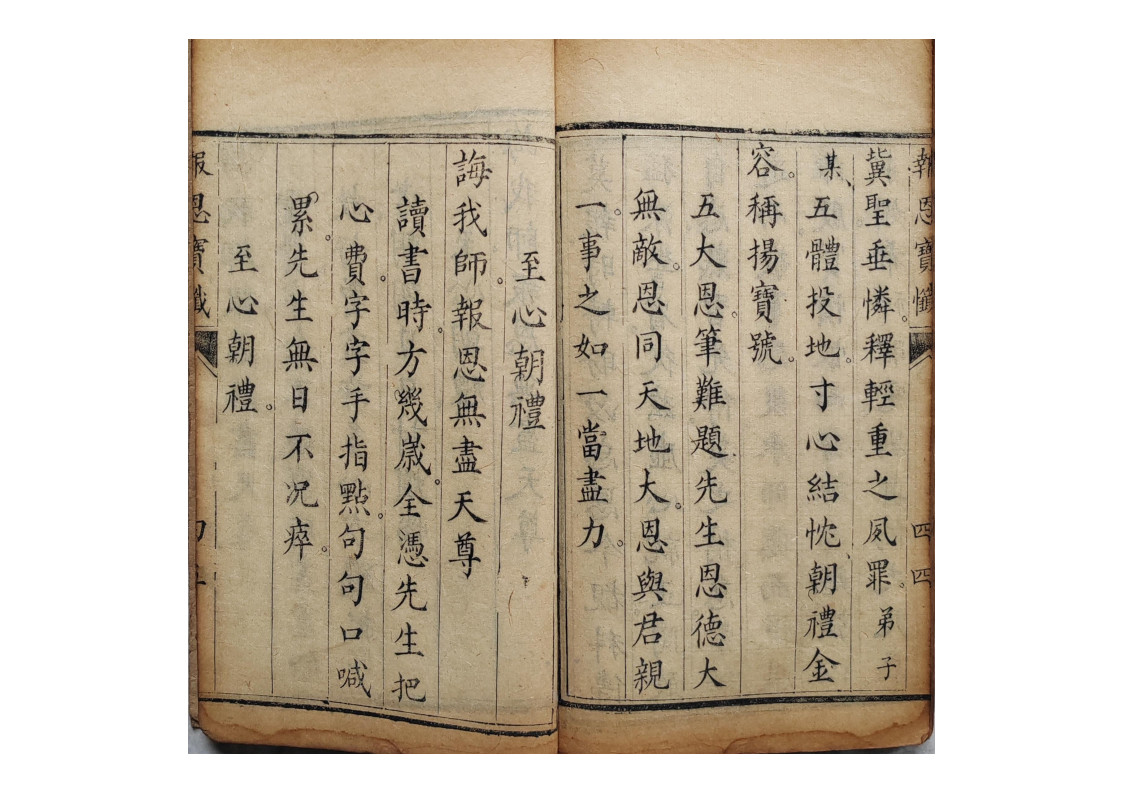 報恩寶懺 四四
冀聖垂憐。釋輕重之夙罪。弟子
某、五體投地。寸心結忱、朝禮金
容。稱揚寶號。
五大恩。筆難題先生恩德大
無敵。恩同天地大。恩與君親
一。事之如一當盡力。
至心朝禮
誨我師。報恩無盡天尊
讀書時。方幾歲。全憑先生把
心費。字字手指點。句句口喊
累。先生無日不況瘁。
至心朝禮。
報恩寶懺